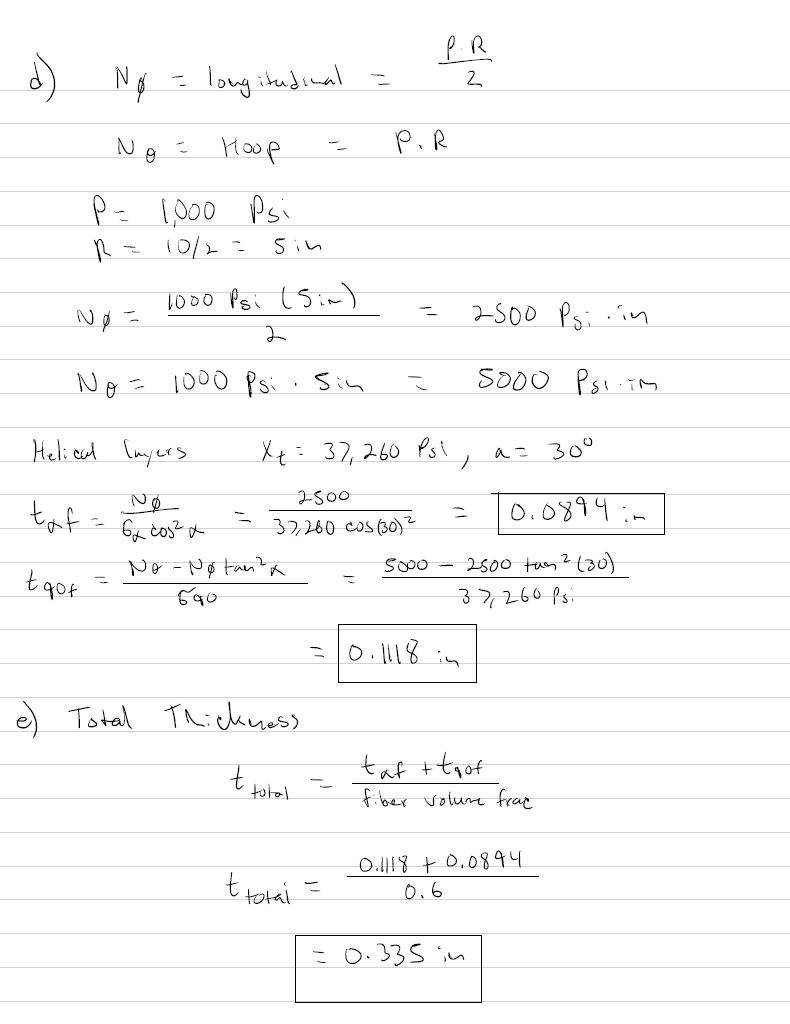 d) Nø = longitudinal = P.R / 2
Nθ = Hoop = P.R
P = 1,000 Psi
R = 10/2 = 5 in
Nø = 1000 Psi (5in) / 2 = 2500 Psi.in
Nθ = 1000 Psi . 5in = 5000 Psi.in
Helical layers Xt = 37,260 Psi, a = 30°
tαf = Nø / 6α cos²α = 2500 / 37,260 cos(30)² = 0.0894 in
t90f = Nθ - Nø tan²α / 690 = 5000 - 2500 tan²(30) / 37,260 Psi
= 0.1118 in
e) Total Thickness
t total = tαf + t90f / fiber volume frac
t total = 0.1118 + 0.0894 / 0.6
= 0.335 in